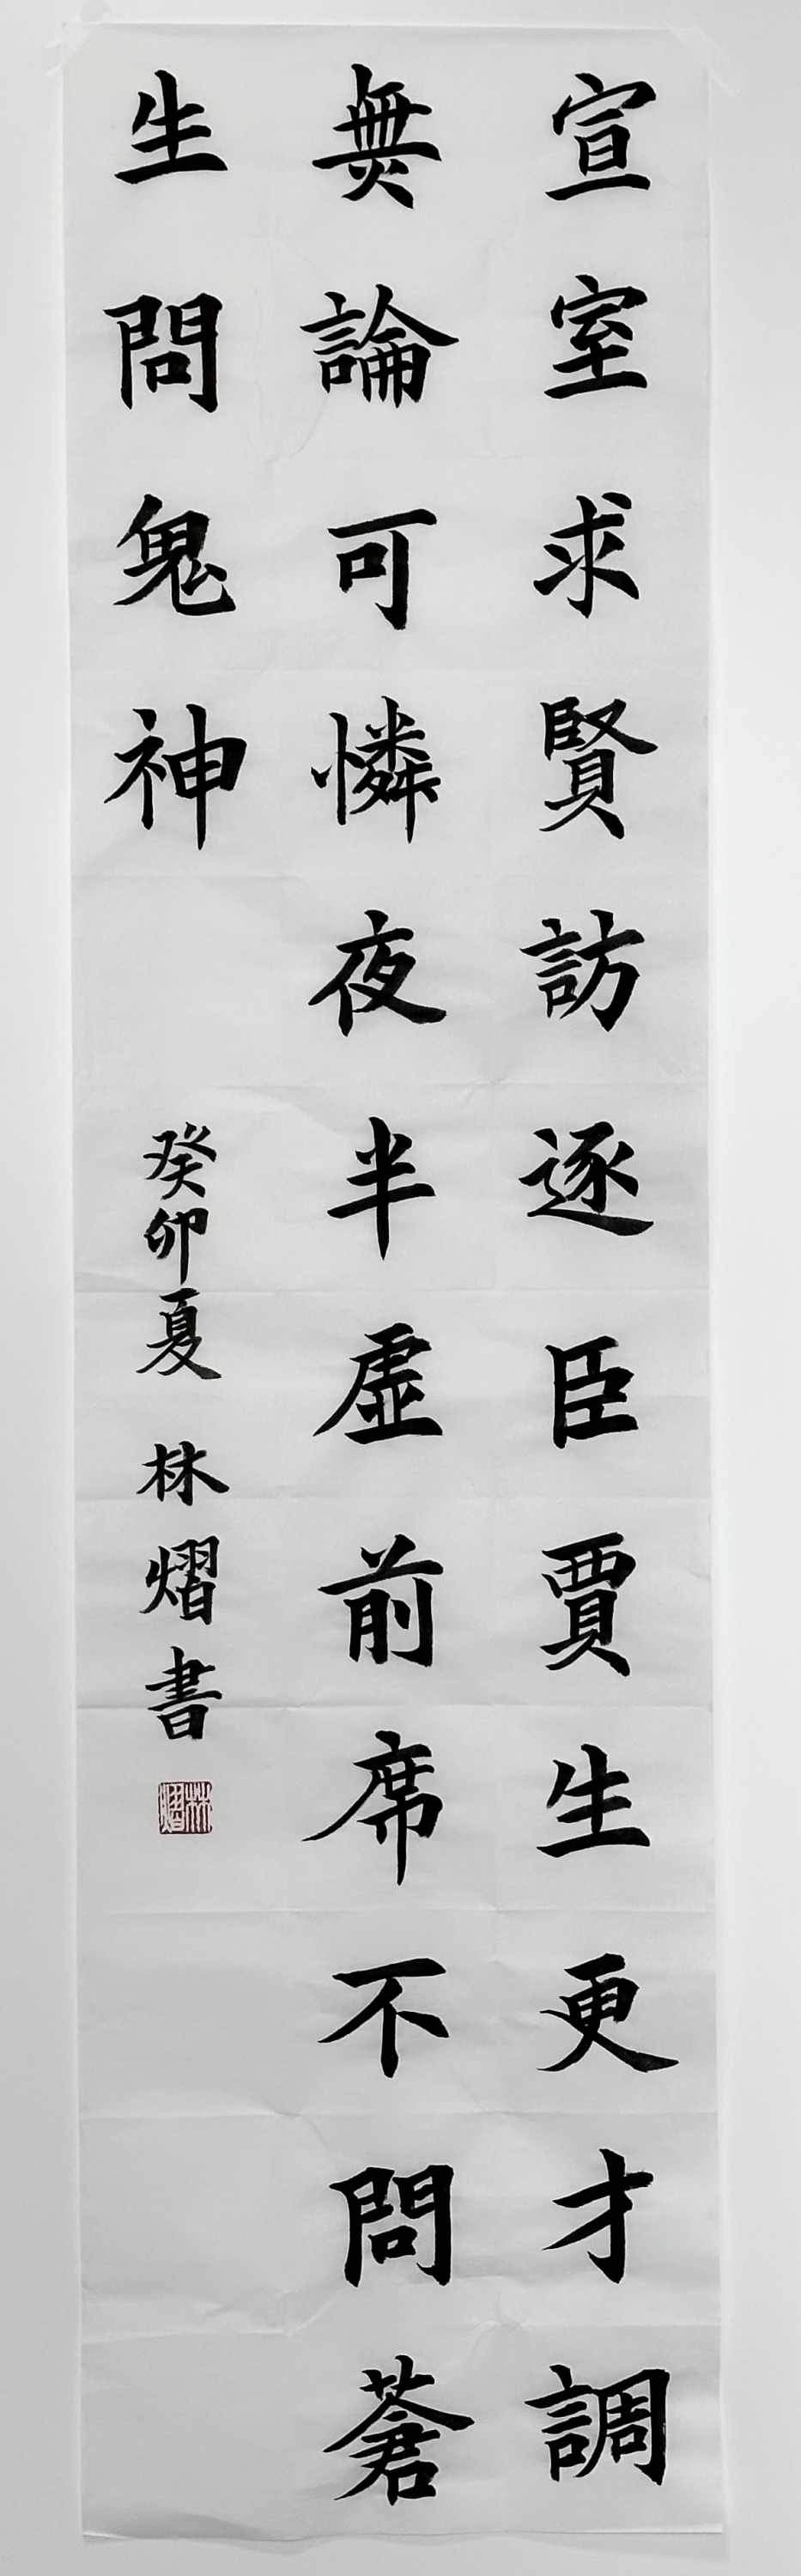 宣室求賢訪逐臣賈生更才調
無論可憐夜半虛前席不問蒼
生問鬼神
癸卯夏 林熠書
林熠